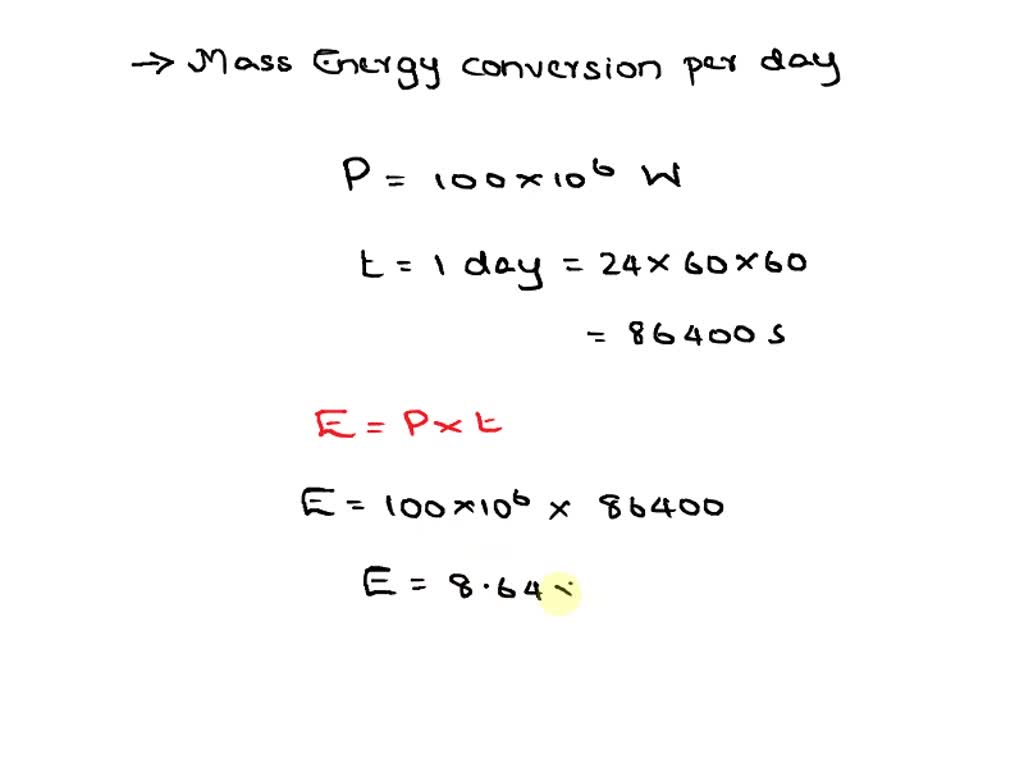 → Mass Energy conversion per day
P = 100×10⁶ W
t = 1 day = 24×60×60
= 86400 s
E = P×t
E = 100×10⁶ × 86400
E = 8.64